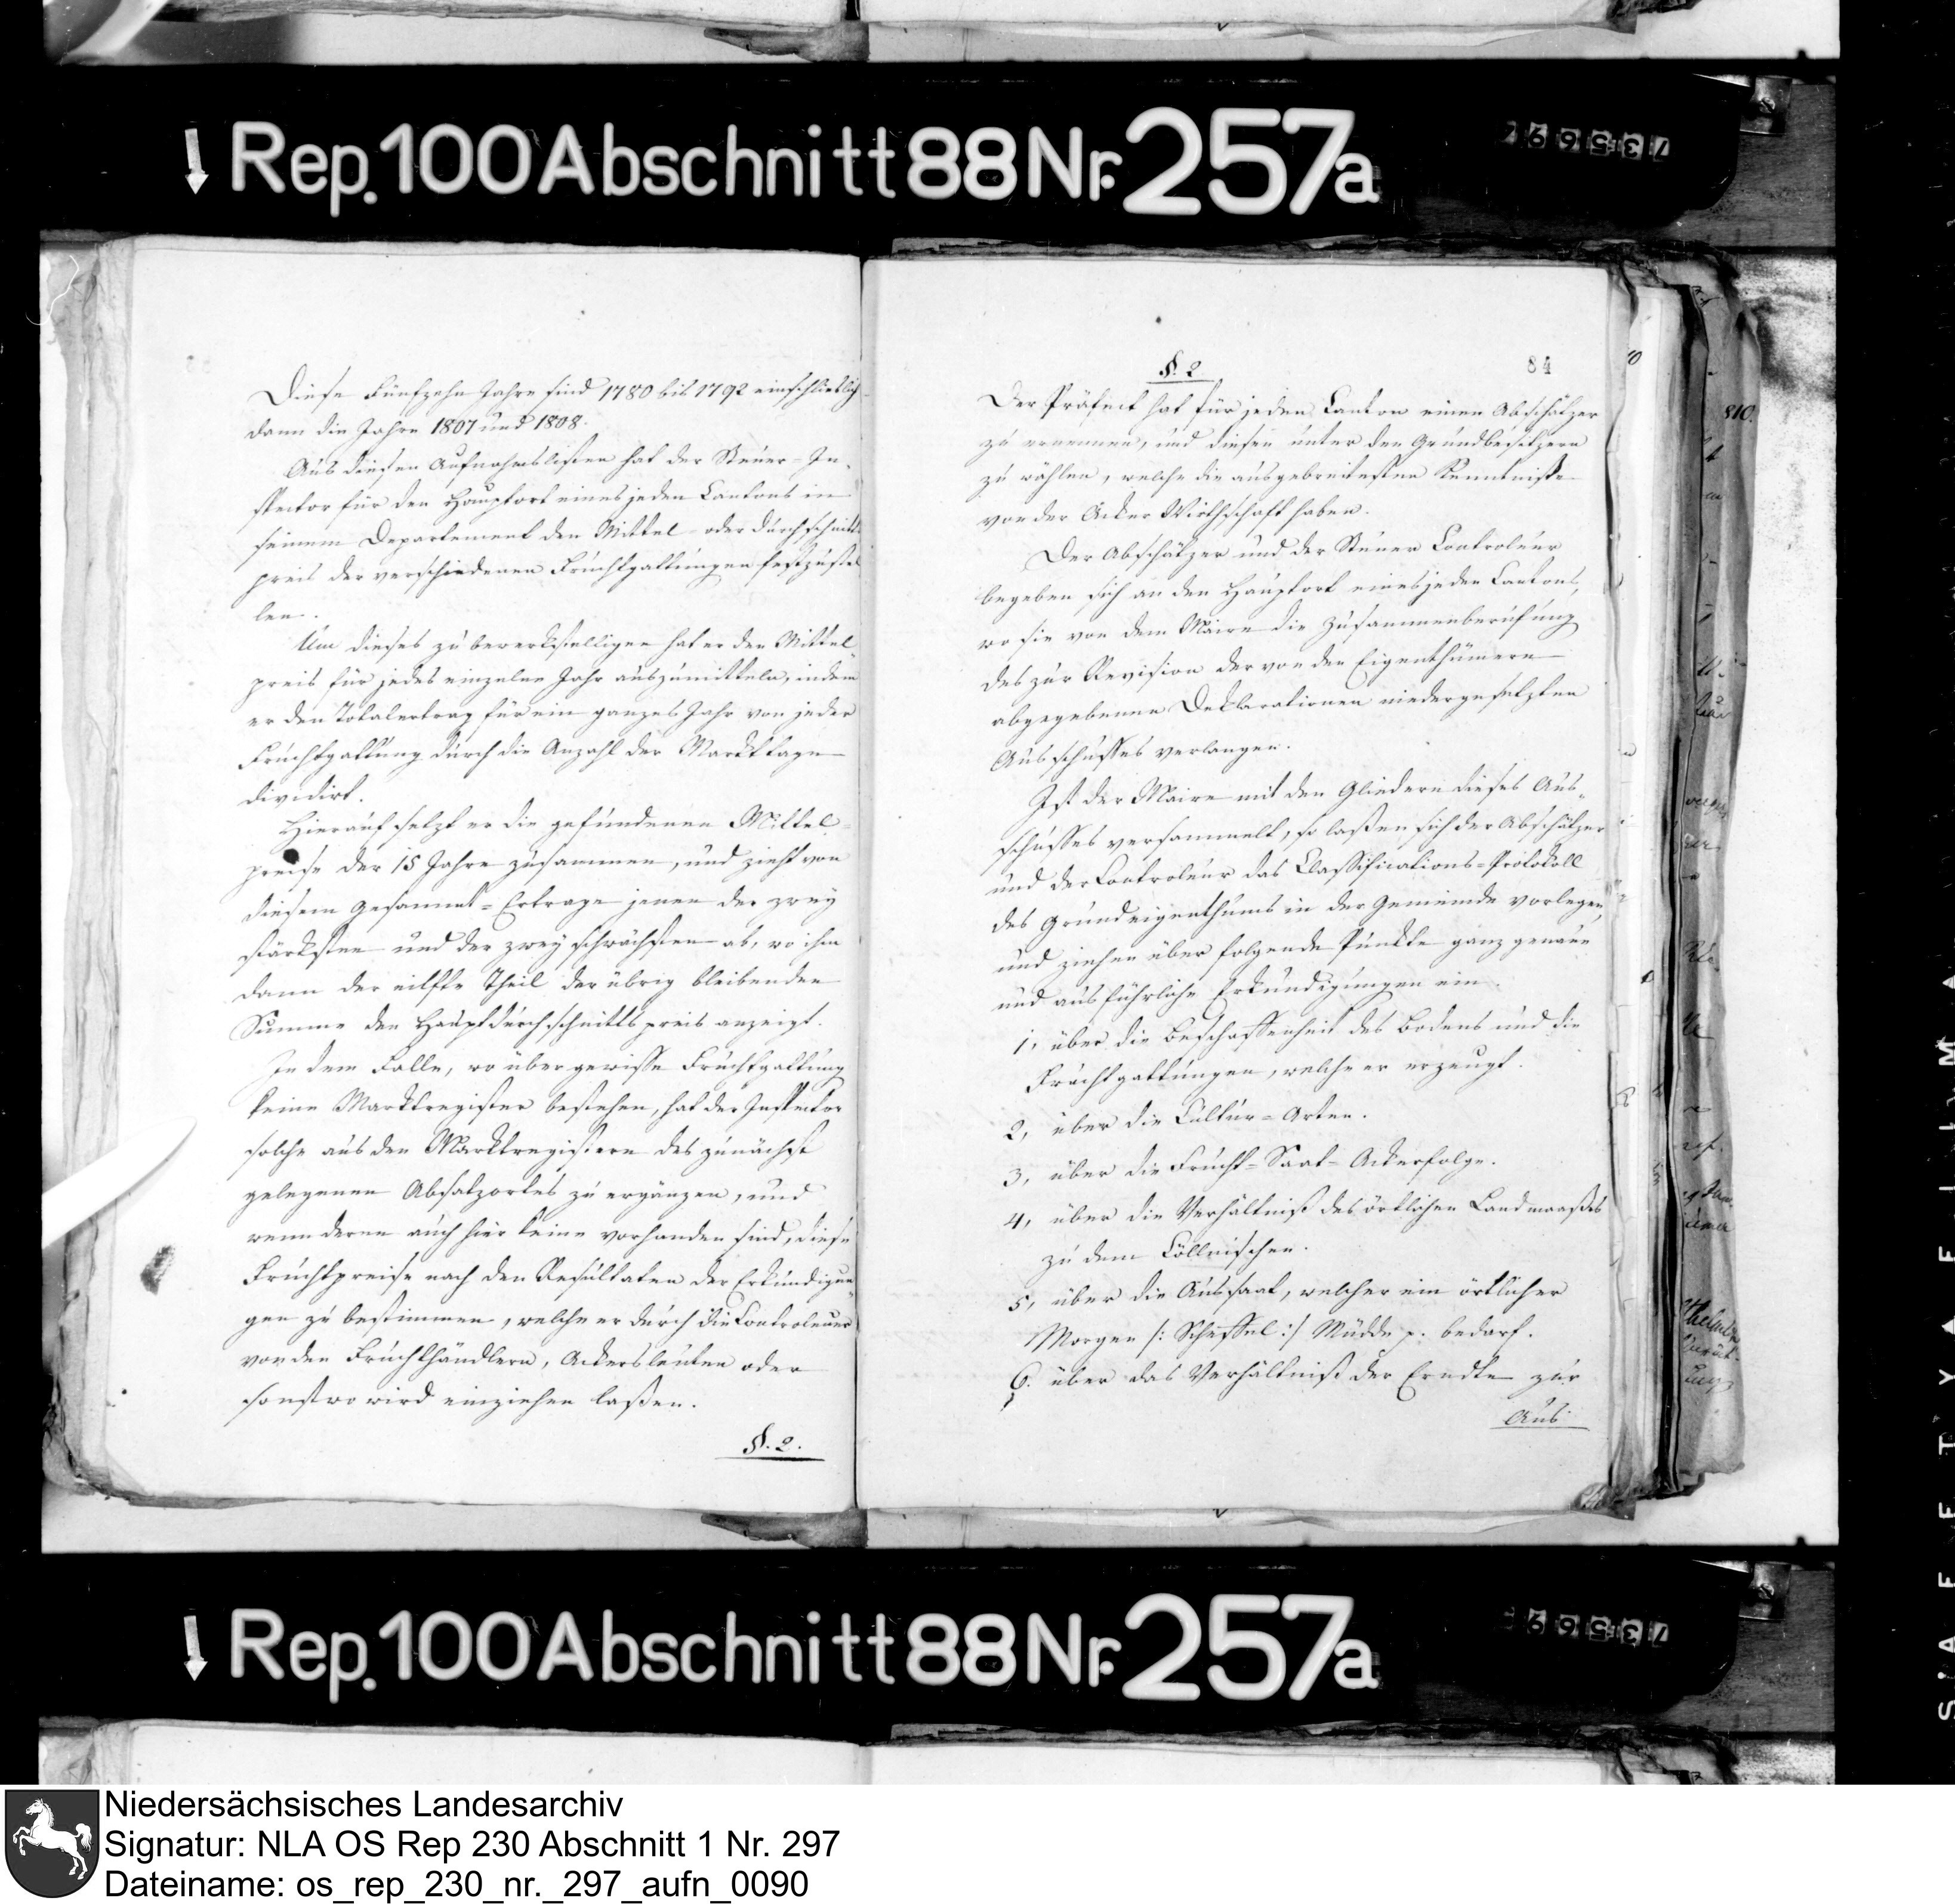 Rep. 100 Abschnitt 88 Nr. 257a
Diese Fünfzehn Jahre sind 1780 bis 1792 einschließlich
dann die Jahre 1807 und 1808.
Aus diesen Aufnahmslisten hat der Steuer-In-
spector für den Hauptort eines jeden Cantons in
seinem Departement den Mittel- oder Durchschnitts
preis der verschiedenen Fruchtgattungen festzustel
len.
Um dieses zu bewerkstelligen hat er den Mittel
preis für jedes einzelne Jahr auszumitteln, indem
er den Totalertrag für ein ganzes Jahr von jeder
Fruchtgattung durch die Anzahl der Markttage
dividirt.
Hierauf setzt er die gefundenen Mittel-
preise der 15 Jahre zusammen, und zieht von
diesem Gesammt-Ertrage jenen der zwey
stärksten und der zwey schwächsten ab, wo ihm
dann der eilfte Theil der übrig bleibenden
Summe den Hauptdurchschnittspreis anzeigt.
In dem Falle, wo über gewisse Fruchtgattung
keine Marktregister bestehen, hat der Inspector
solche aus den Marktregistern des zunächst
gelegenen Absatzortes zu ergänzen, und
wenn deren auch hier keine vorhanden sind, diese
Fruchtpreise nach den Resultaten der Erkundigun-
gen zu bestimmen, welche er durch die Controleurs
von den Fruchthändlern, Ackersleuten oder
sonstwo wird einziehen laßen.
§. 2.
84
§. 2
Der Präfect hat für jeden Canton einen Abschätzer
zu ernennen, und diesen unter den Grundbesitzern
zu wählen, welche die ausgebreitesten Kenntniße
von der Acker Wirthschaft haben.
Der Abschätzer und der Steuer Controleur
begeben sich an den Hauptort eines jeden Cantons,
wo sie von dem Maire die Zusammenberufung
des zur Revision der von den Eigenthümern
abgegebenen Deklarationen niedergesetzten
Ausschußes verlangen.
Ist der Maire mit den Gliedern dieses Aus-
schußes versammelt, so laßen sich der Abschätzer
und der Controleur das Classifications-Protokoll
des Grundeigenthums in der Gemeinde vorlegen,
und ziehen über folgende Punkte ganz genaue
und ausführliche Erkundigungen ein.
1, über die Beschaffenheit des Bodens und die
Fruchtgattungen, welche er erzeugt.
2, über die Cultur-Arten.
3, über die Frucht-Saat-Ackerfolge.
4, über die Verhältniß des örtlichen Landmaaßes
zu dem Cöllnischen.
5, über die Aussaat, welcher ein örtlicher
Morgen /: Scheffel :/ Müdde p. bedarf.
6. über das Verhältniß der Erndte zur
Aus
810.
Rep. 100 Abschnitt 88 Nr. 257a
Niedersächsisches Landesarchiv
Signatur: NLA OS Rep 230 Abschnitt 1 Nr. 297
Dateiname: os_rep_230_nr._297_aufn_0090